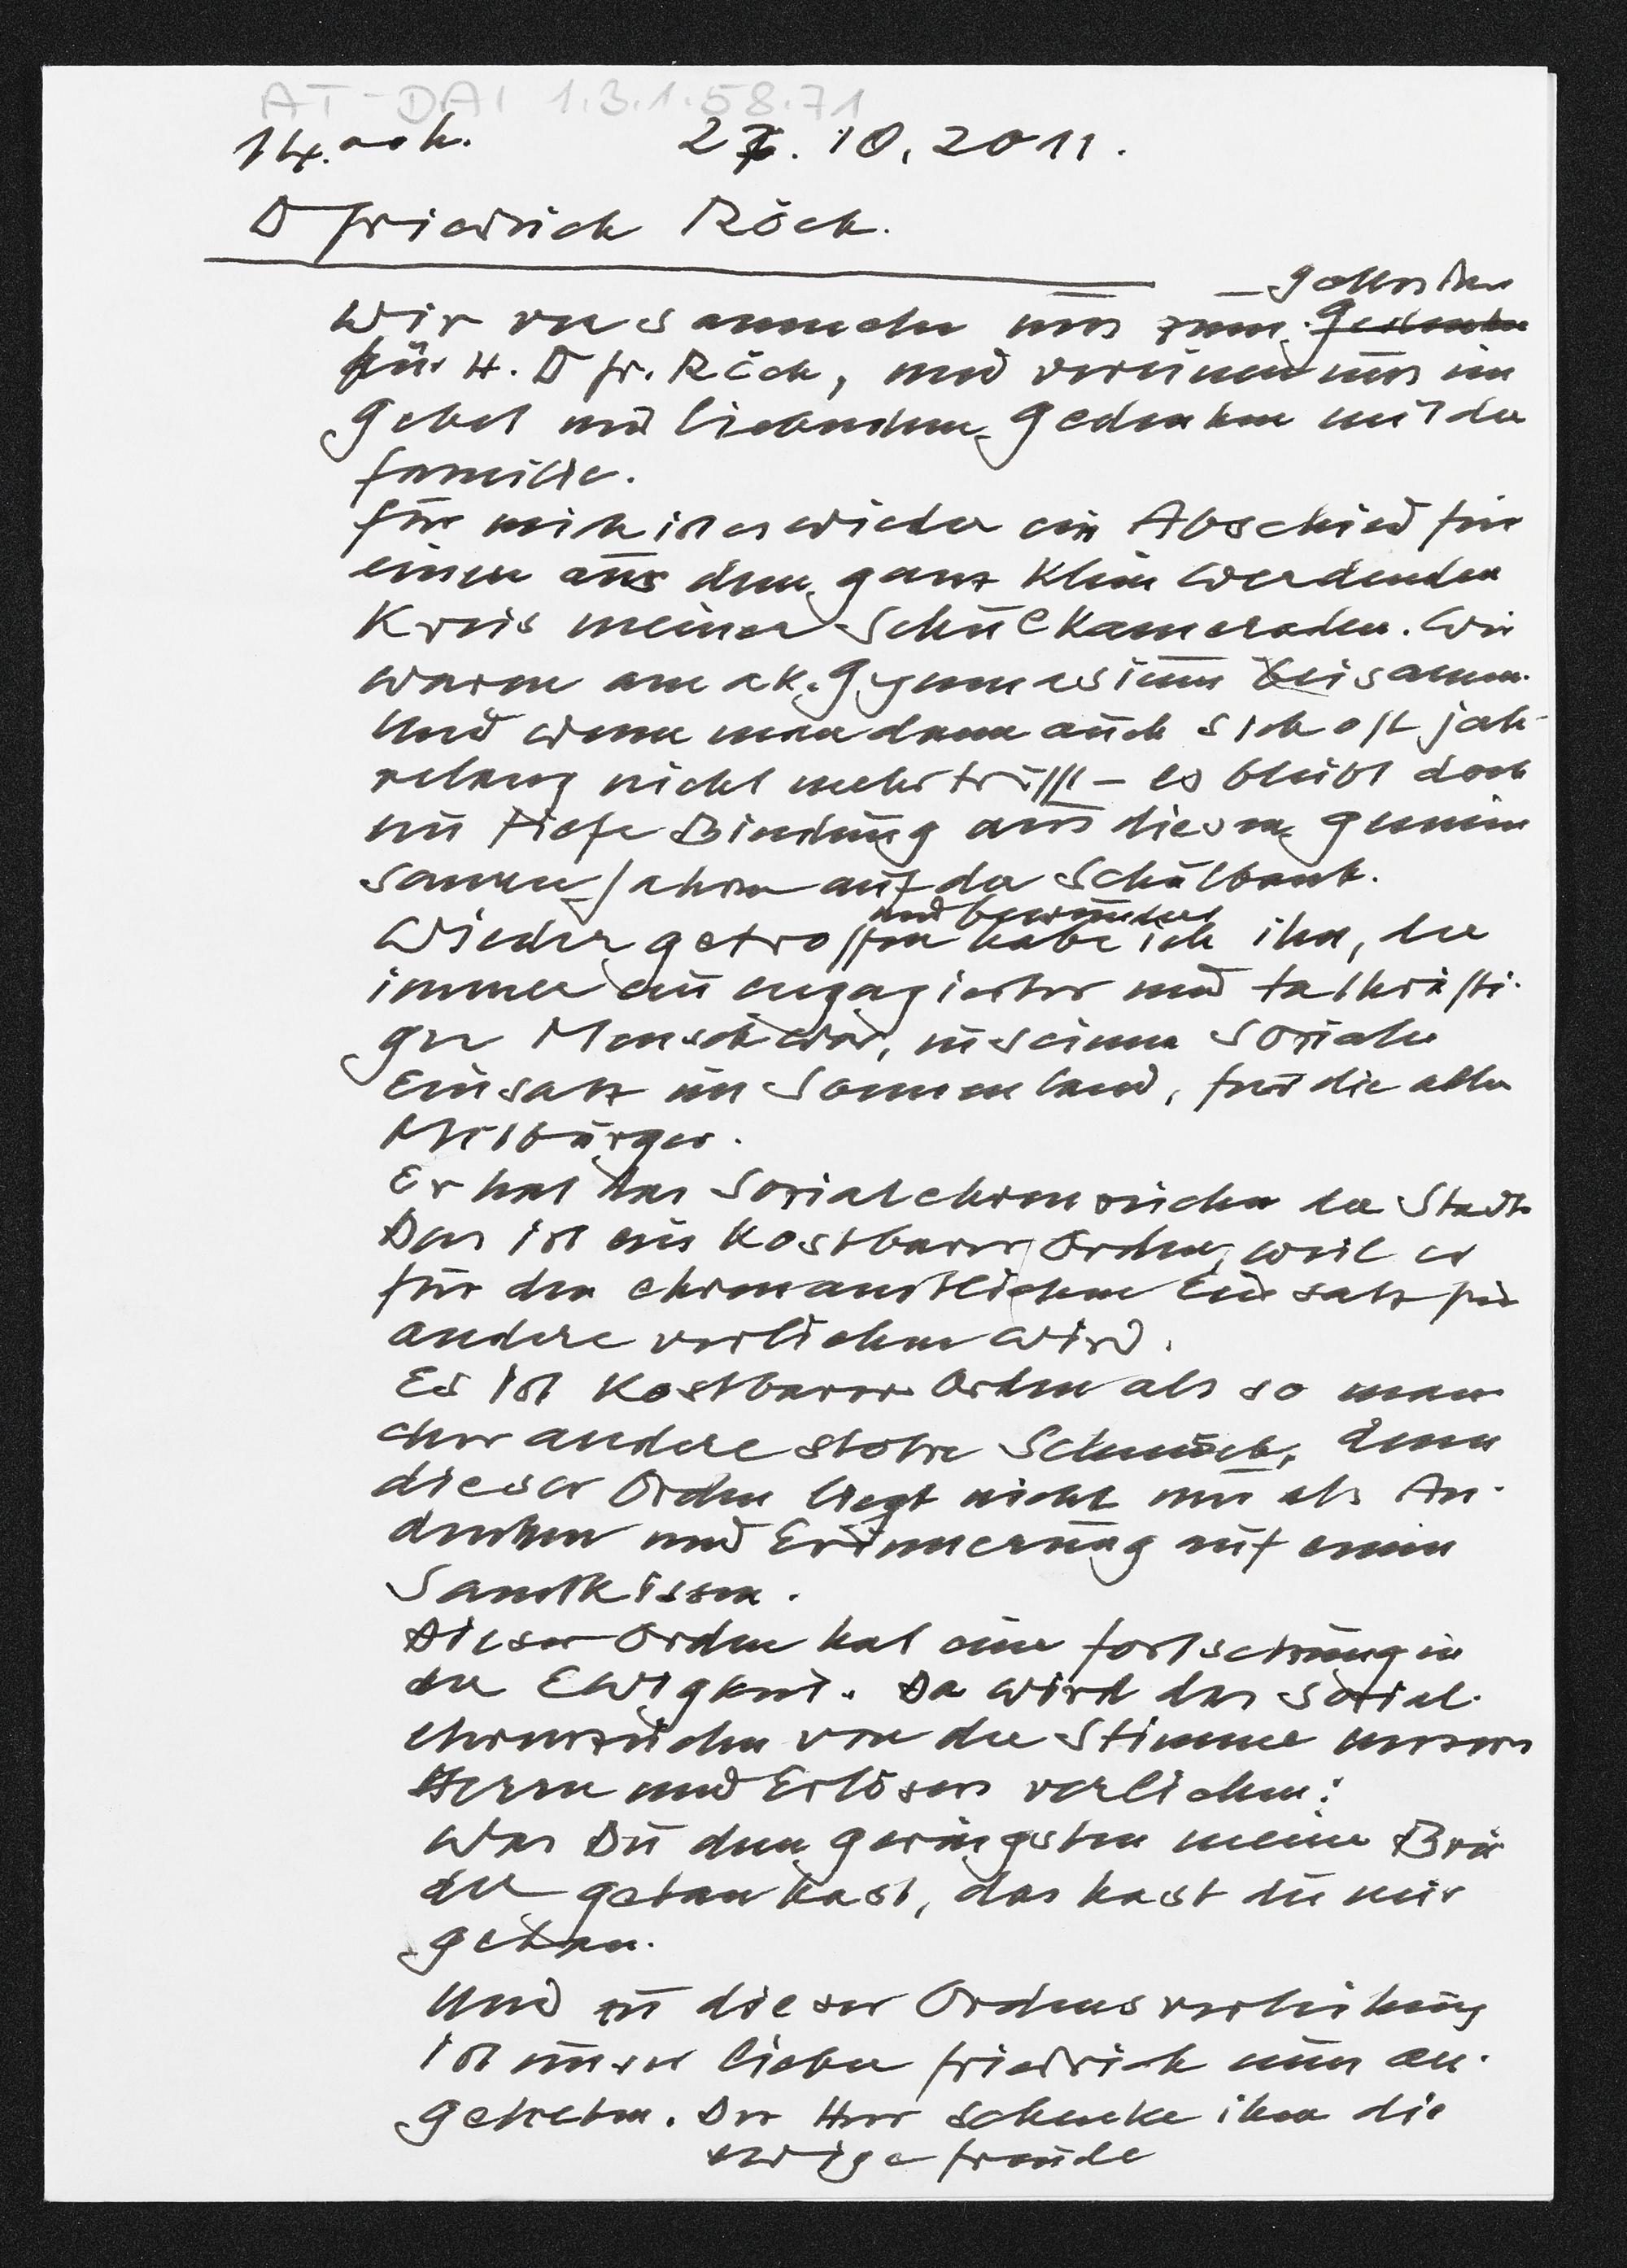 AT-DAI 1.3.1.58.71
14.00 h. 27. 10. 2011.
D Friedrich Röck.
Gottesdienst
Wir versammeln uns zum Gedenken
für H. D Fr. Röck, und vereinen uns im
Gebet und liebendem Gedenken mit der
Familie.
Für mich ist es wieder ein Abschied für
einen aus dem ganz klein werdenden
Kreis meiner Schulkameraden. Wir
waren am ak. Gymnasium beisamm.
Und wenn man dann auch sich oft jah-
relang nicht mehr trifft – es bleibt doch
eine tiefe Bindung aus diesen gemein
samen Jahren auf der Schulbank.
und bewundert
Wieder getroffen habe ich ihn, der
immer ein engagierter und tatkräfti-
ger Mensch war, in seinem Soziale
Einsatz im Sonnenland, für die alten
Mitbürger.
Er hat das Sozialehrenzeichen der Stadt
Das ist ein kostbarer Orden, weil er
für den ehrenamtlichen Einsatz für
andere verliehen wird.
Es ist kostbarer Orden als so man
cher andere stolze Schmuck, denn
dieser Orden liegt nicht nur als An-
denken und Erinnerung auf einem
Samtkissen.
Dieser Orden hat eine Fortsetzung in
der Ewigkeit. Da wird das Sozial-
ehrenzeichen von der Stimme unseres
Herrn und Erlösers verliehen:
Was Du dem geringsten meiner Brü
der getan hast, das hast du mir
getan.
Und zu dieser Ordensverleihung
ist unser lieber Friedrich nun an-
getreten. Der Herr schenke ihm die
ewige Freude